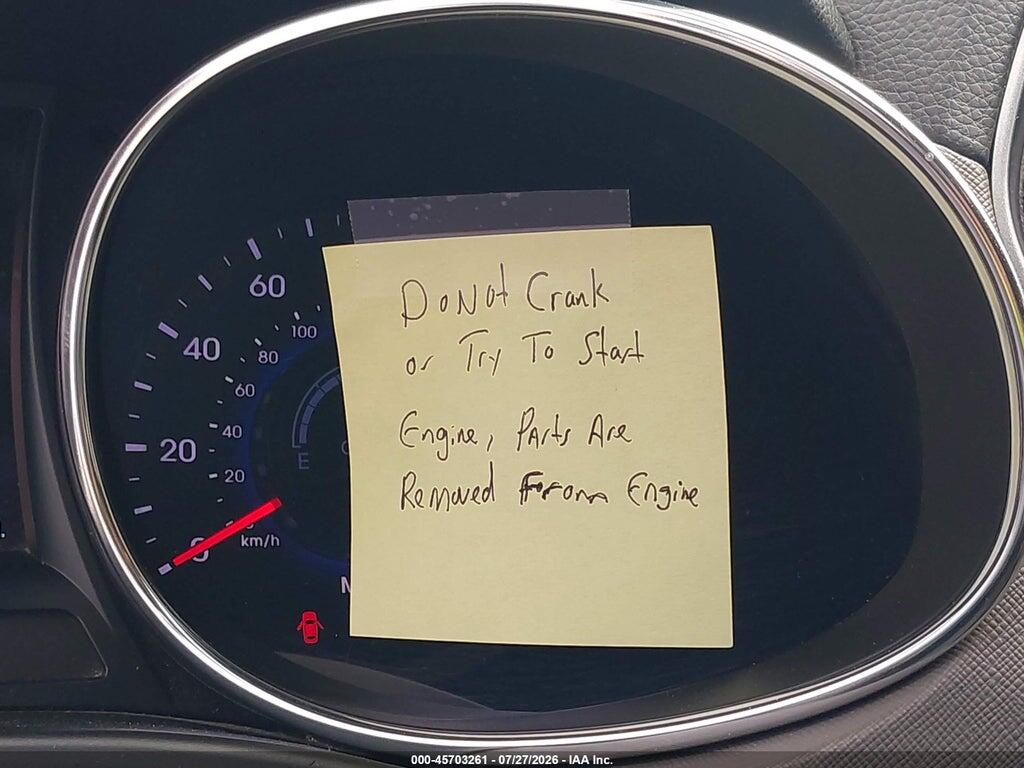 60
100
40
80
60
20
40
20
E
0
km/h
DoNot Crank
or Try To Start
Engine, Parts Are
Removed From Engine
000-45703261 - 07/27/2026 - IAA Inc.